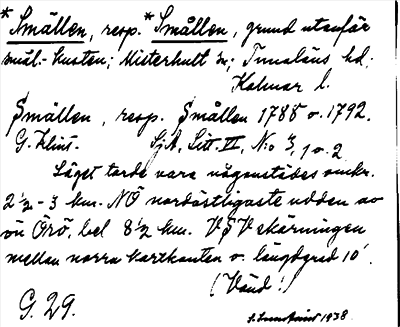 *Smällen, resp. *Smållen, grund utanför
smål.-kusten; Misterhult sn; Tunaläns hd;
Kalmar l.
Smällen, resp. Smållen 1788 o. 1792.
G. Klint. SjA, Litt. VI, N:o 3, 1 o. 2
Läget torde vara någonstädes omkr.
2 1/2 - 3 km. NÖ nordöstligaste udden av
ön Örö, bel 8 1/2 km. VSV skärningen
mellan norra kartkanten o. längdgrad 10'.
(Vänd!)
G. 29.
1938